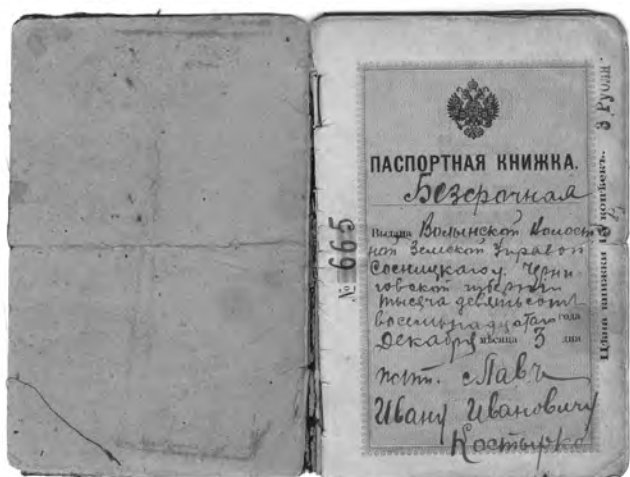 № 665
ПАСПОРТНАЯ КНИЖКА.
Безсрочная
Выдана Волынской Волост
ной Земской Управой
Сосницкаго у. Черни
говской губернии
тысяча девятьсот
восемьнадцатаго года
Декабря мѣсяца 3 дня
Ивану Ивановичу
Костырко
Цѣна книжки 15 копѣекъ. 3 Рубля